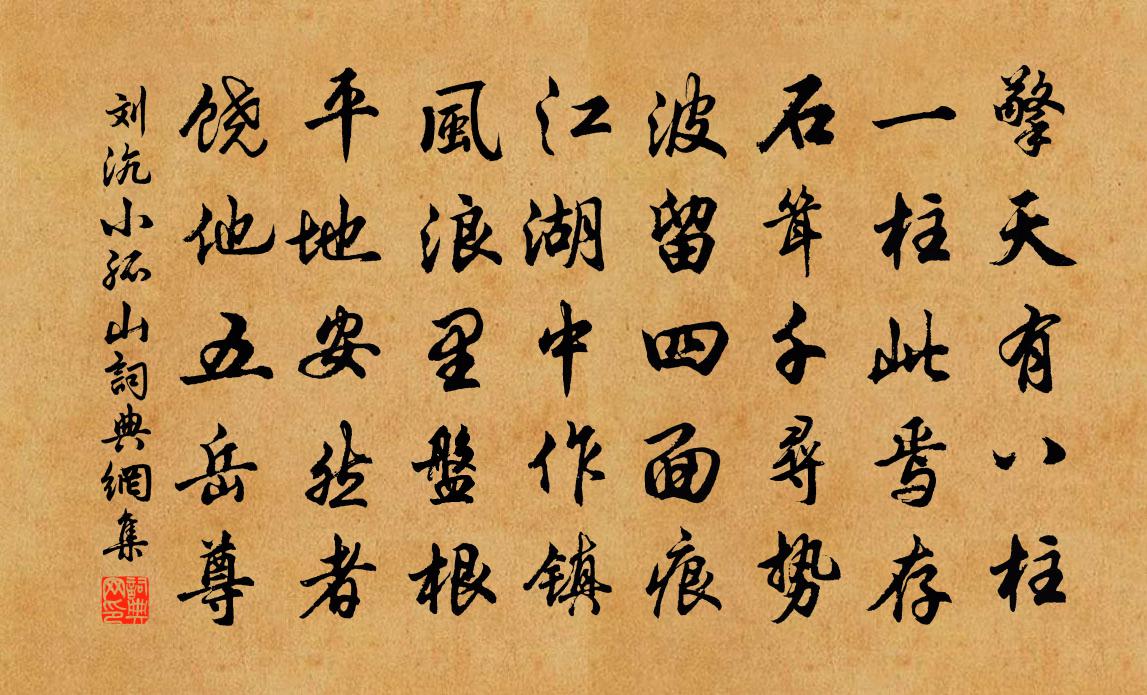 擎天有八柱
一柱此焉存
石耸千尋勢
波留四面痕
江湖中作鎮
風浪里盤根
平地安然者
饶他五岳尊
刘沆小孤山詞典網集
詞典网印